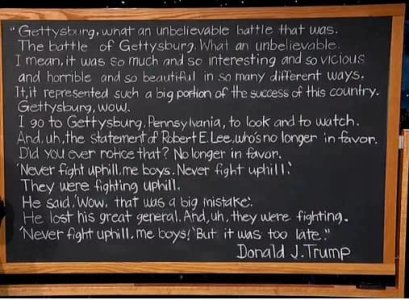 "Gettysburg, what an unbelievable battle that was.
The battle of Gettysburg. What an unbelievable.
I mean, it was so much and so interesting and so vicious
and horrible and so beautiful in so many different ways.
It, it represented such a big portion of the success of this country.
Gettysburg, wow.
I go to Gettysburg, Pennsylvania, to look and to watch.
And, uh, the statement of Robert E. Lee, who's no longer in favor.
Did you ever notice that? No longer in favor.
'Never fight uphill, me boys. Never fight uphill.'
They were fighting uphill.
He said, 'Wow, that was a big mistake.'
He lost his great general. And, uh, they were fighting.
'Never fight uphill, me boys!' But it was too late."
Donald J. Trump